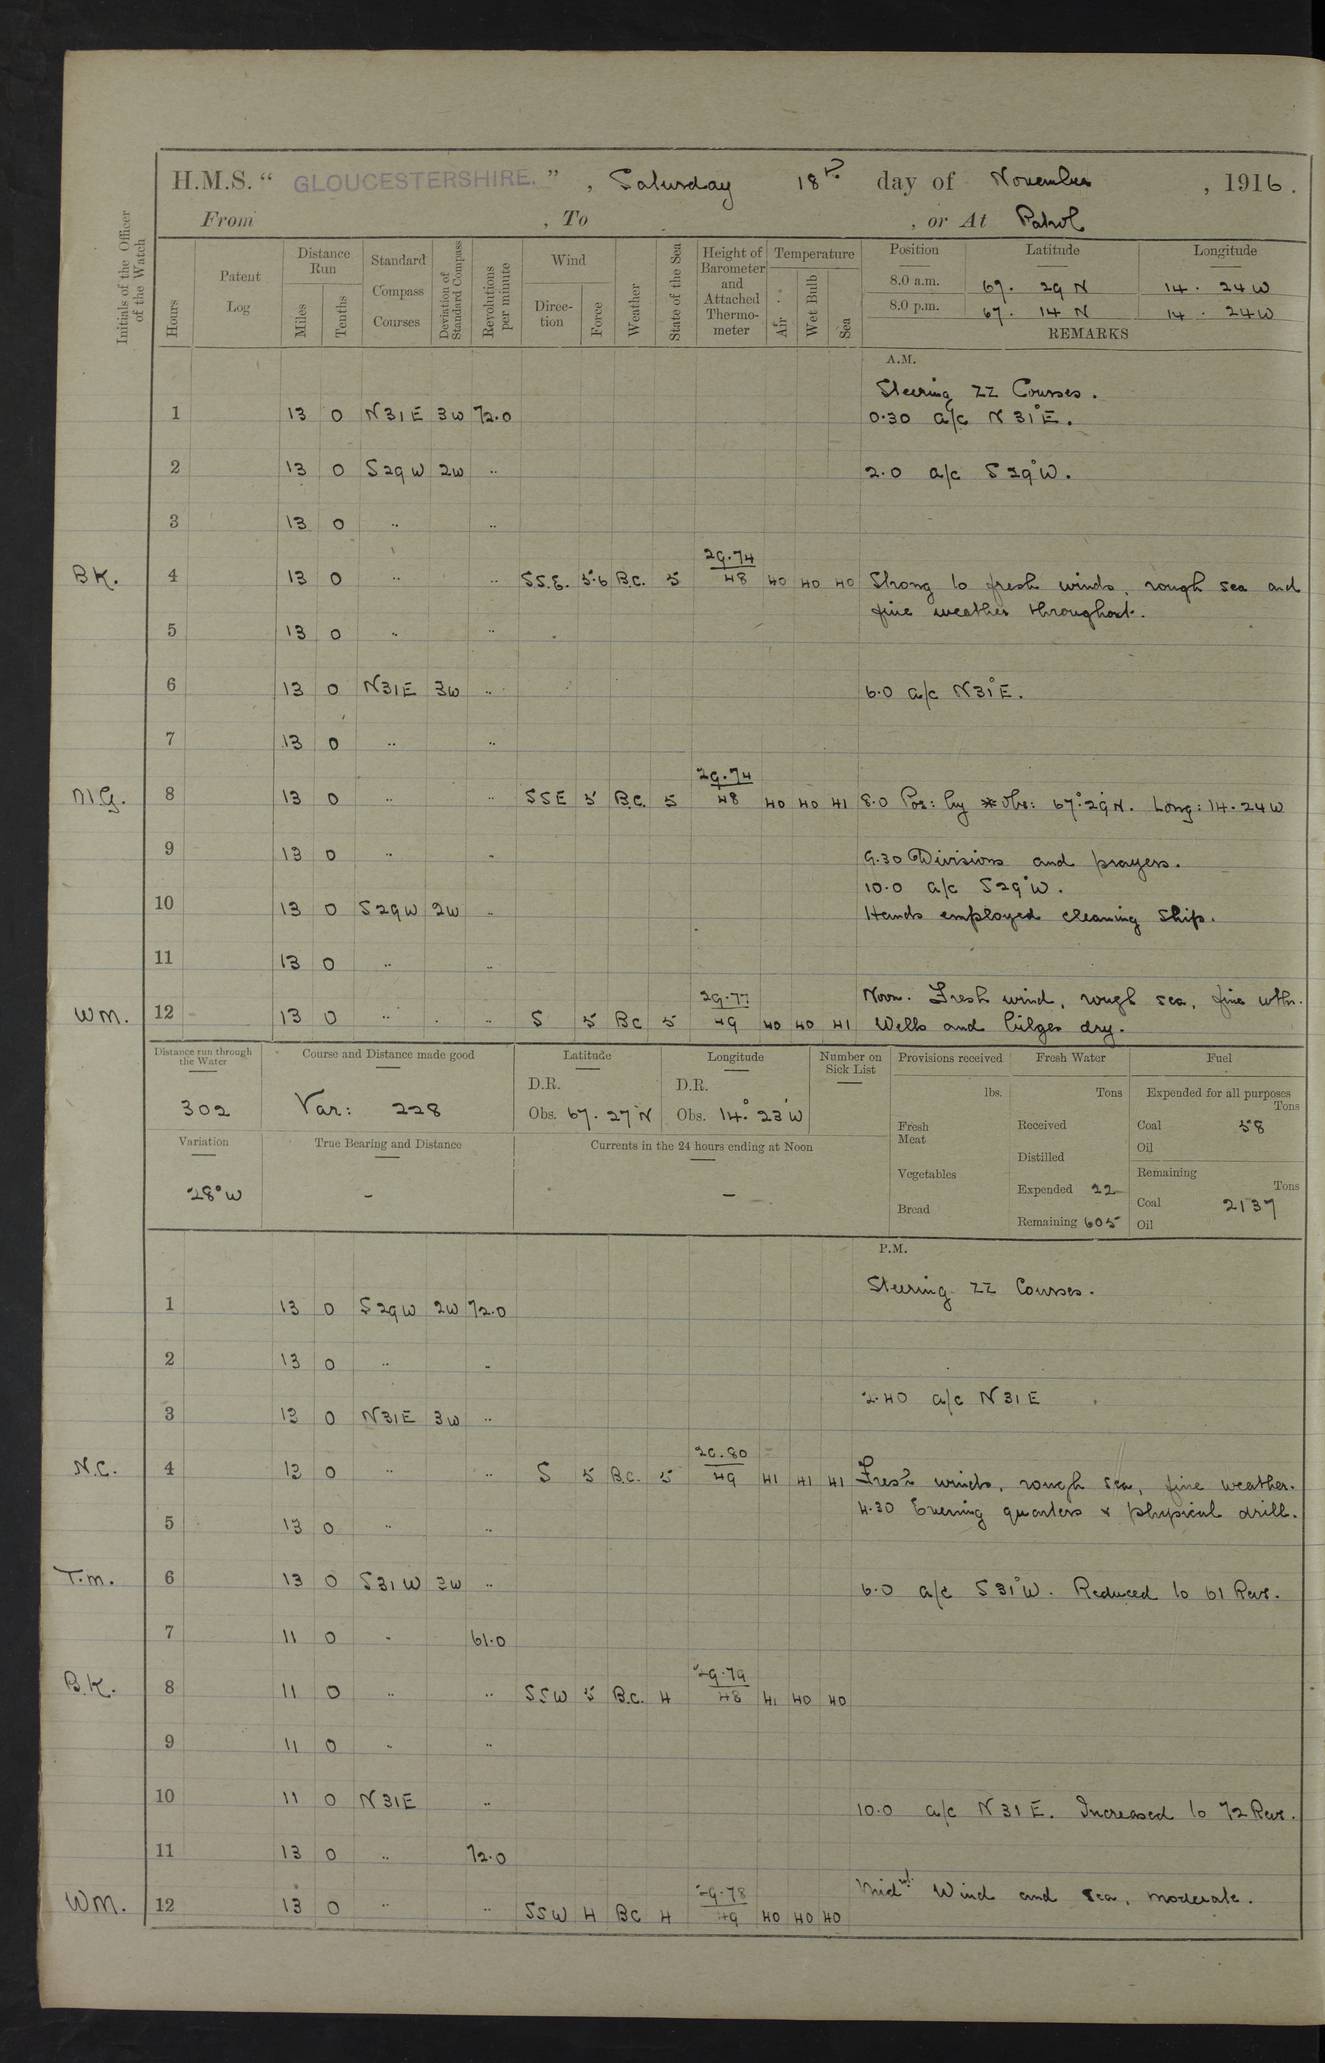 H.M.S. “ GLOUCESTERSHIRE. ” , Saturday 18th day of November , 1916.
From , To , or At Patrol
Initials of the Officer of the Watch
Hours Patent Log Distance Run Miles Tenths Standard Compass Courses Deviation of Standard Compass Revolutions per minute Wind Direction Force Weather State of the Sea Height of Barometer and Attached Thermometer Temperature Air Wet Bulb Sea Position Latitude Longitude
8.0 a.m. 67. 29 N 14. 24 W
8.0 p.m. 67. 14 N 14. 24 W
REMARKS
A.M.
Steering ZZ Courses.
1 13 0 N31E 3W 72.0 0.30 a/c N 31°E.
2 13 0 S29W 2W .. 2.0 a/c S 29°W.
3 13 0 .. ..
BK. 4 13 0 .. .. S.S.E. 5.6 B.C. 5 29.74/48 40 40 40 Strong to fresh winds, rough sea and
fine weather throughout.
5 13 0 .. ..
6 13 0 N31E 3W .. 6.0 a/c N31°E.
7 13 0 .. ..
M.G. 8 13 0 .. .. SSE 5 B.C. 5 29.74/48 40 40 41 8.0 Pos: by * Obs: 67°.29'N. Long: 14.24W
9 13 0 .. .. 9.30 Divisions and prayers.
10.0 a/c S29°W.
10 13 0 S29W 2W .. Hands employed cleaning ship.
11 13 0 .. ..
Noon. Fresh wind, rough sea, fine wthr.
WM. 12 13 0 .. . .. S 5 BC 5 29.77/49 40 40 41 Wells and bilges dry.
Distance run through the Water Course and Distance made good Latitude Longitude Number on Sick List Provisions received Fresh Water Fuel
302 Var: 228 D.R. D.R. lbs. Tons Expended for all purposes Tons
Obs. 67. 27 N Obs. 14°. 23' W Fresh Meat Received Coal 58
Variation True Bearing and Distance Currents in the 24 hours ending at Noon Oil
Distilled
28°W - - Vegetables Expended 22 Remaining Tons
Coal 2137
Bread Remaining 605 Oil
P.M.
Steering ZZ Courses.
1 13 0 S29W 2W 72.0
2 13 0 .. ..
2.40 a/c N31E
3 13 0 N31E 3W ..
N.C. 4 13 0 .. .. S 5 B.C. 5 29.80/49 41 41 41 Fresh winds, rough sea, fine weather.
4.30 Evening quarters & physical drill.
5 13 0 .. ..
T.M. 6 13 0 S31W 3W .. 6.0 a/c S31°W. Reduced to 61 Revs.
7 11 0 .. 61.0
B.K. 8 11 0 .. .. SSW 5 B.C. 4 29.79/48 41 40 40
9 11 0 .. ..
10 11 0 N31E .. 10.0 a/c N31E. Increased to 72 Revs.
11 13 0 .. 72.0
WM. 12 13 0 .. .. SSW 4 BC 4 29.78/49 40 40 40 Midt. Wind and sea, moderate.